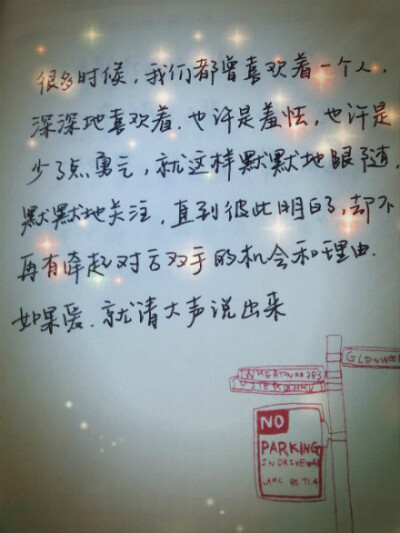 很多时候，我们都曾喜欢着一个人，
深深地喜欢着．也许是羞怯，也许是
少了点勇气，就这样默默地跟随，
默默地关注，直到彼此明白了，却不
再有牵起对方双手的机会和理由．
如果爱．就请大声说出来
GLENWOO
NO
PARKING
IN DRIVEWAY